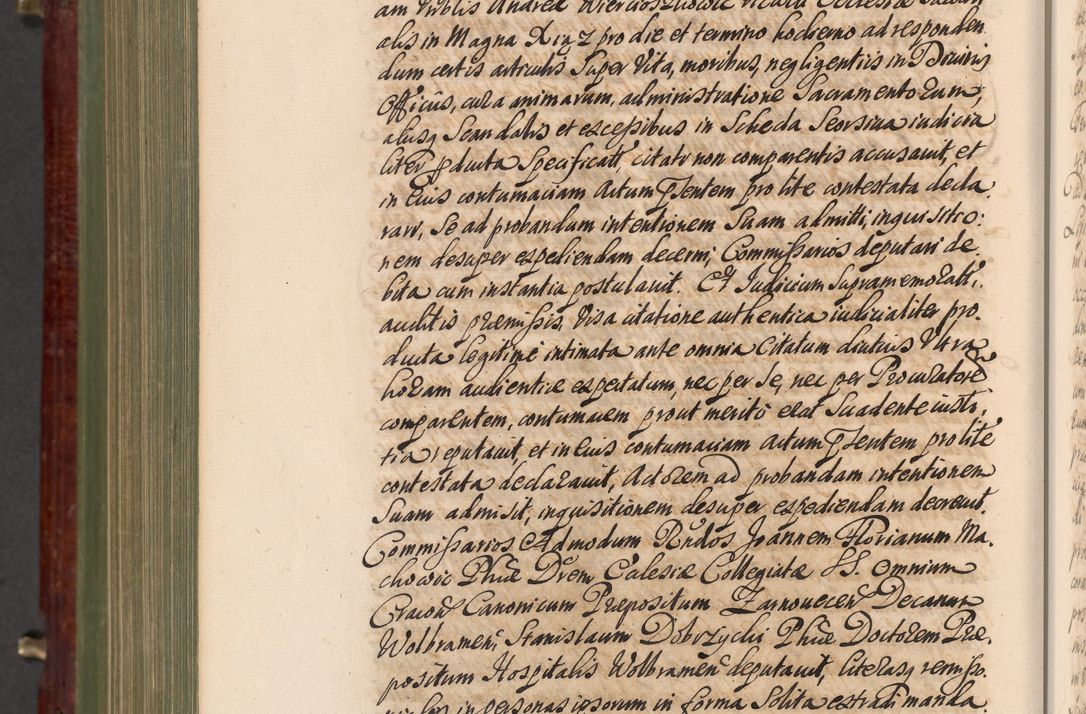 alis in Magna Xiąz pro die et termino hodierno ad responden
dum certis articulis Super Vita, moribus, negligentiis in Divinis
Officiis, cura animarum, administratione Sacramentorum,
alijsq Scandalis et excessibus in Scheda Seorsiva iudicia
liter pducta Specificatt, citatt non comparentis accusavit, et
in Eius contumaciam Actum psentem pro lite contestata decla
rari, Se ad probandum intentionem Suam admitti, inquisitio:
nem desuper expediendam decerni, Commissarios deputari de
bita cum instantia postulavit. Et Iudicium Supramemoratt,
auditis præmissis, Visa citatione authentica iudicialiter pro.
ducta legitime intimata ante omnia Citatum diutius Ultra
horam audientiæ expectatum, nec per Se, nec per Procuratorē
comparentem, contumacem prout meritò erat Suadente iusti,
tia reputavit, et in Eius contumaciam actum psentem pro lite
contestata declaravit, Actorem ad probandam intentionem
Suam admisit, inquisitionem desuper expediendam decrevit.
Commissarios Admodum Rndos Joannem Florianum Ma.
chowic Phiæ Drem, Ecclesiæ Collegiatæ SS. Omnium
Cracov Canonicum Præpositum Żarnovecen Decanum
Wolbramen, Stanislaum Dobrzycki Phiæ Doctorem Præ.
positum Hospitalis Wolbramen deputavit, literasq remisso.
in personas ipsorum in forma Solita extradi manda.